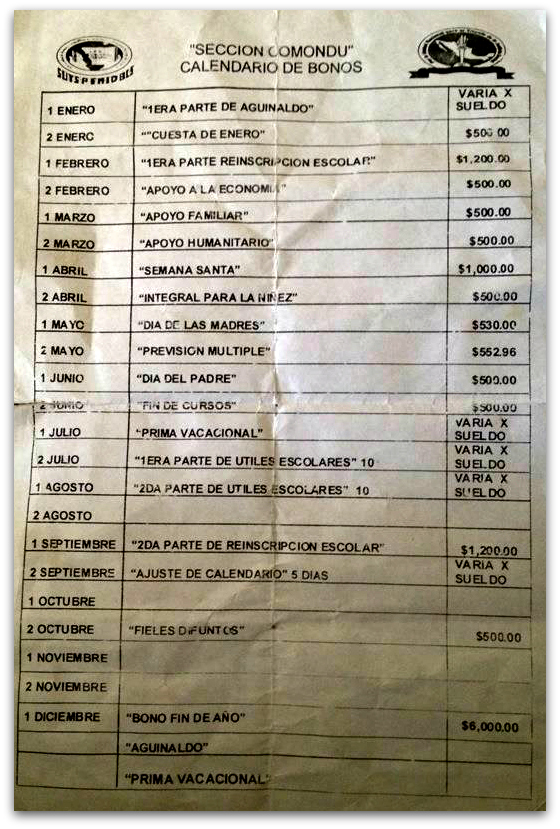 "SECCION COMONDU"
CALENDARIO DE BONOS
SUTSPEMIDBCS
1 ENERO "1ERA PARTE DE AGUINALDO" VARIA X SUELDO
2 ENERO ""CUESTA DE ENERO" $500.00
1 FEBRERO "1ERA PARTE REINSCRIPCION ESCOLAR" $1,200.00
2 FEBRERO "APOYO A LA ECONOMIA" $500.00
1 MARZO "APOYO FAMILIAR" $500.00
2 MARZO "APOYO HUMANITARIO" $500.00
1 ABRIL "SEMANA SANTA" $1,000.00
2 ABRIL "INTEGRAL PARA LA NIÑEZ" $500.00
1 MAYO "DIA DE LAS MADRES" $530.00
2 MAYO "PREVISION MULTIPLE" $552.96
1 JUNIO "DIA DEL PADRE" $500.00
2 JUNIO "FIN DE CURSOS" $500.00
1 JULIO "PRIMA VACACIONAL" VARIA X SUELDO
2 JULIO "1ERA PARTE DE UTILES ESCOLARES" 10 VARIA X SUELDO
1 AGOSTO "2DA PARTE DE UTILES ESCOLARES" 10 VARIA X SUELDO
2 AGOSTO
1 SEPTIEMBRE "2DA PARTE DE REINSCRIPCION ESCOLAR" $1,200.00
2 SEPTIEMBRE "AJUSTE DE CALENDARIO" 5 DIAS VARIA X SUELDO
1 OCTUBRE
2 OCTUBRE "FIELES DIFUNTOS" $500.00
1 NOVIEMBRE
2 NOVIEMBRE
1 DICIEMBRE "BONO FIN DE AÑO" $6,000.00
"AGUINALDO"
"PRIMA VACACIONAL"